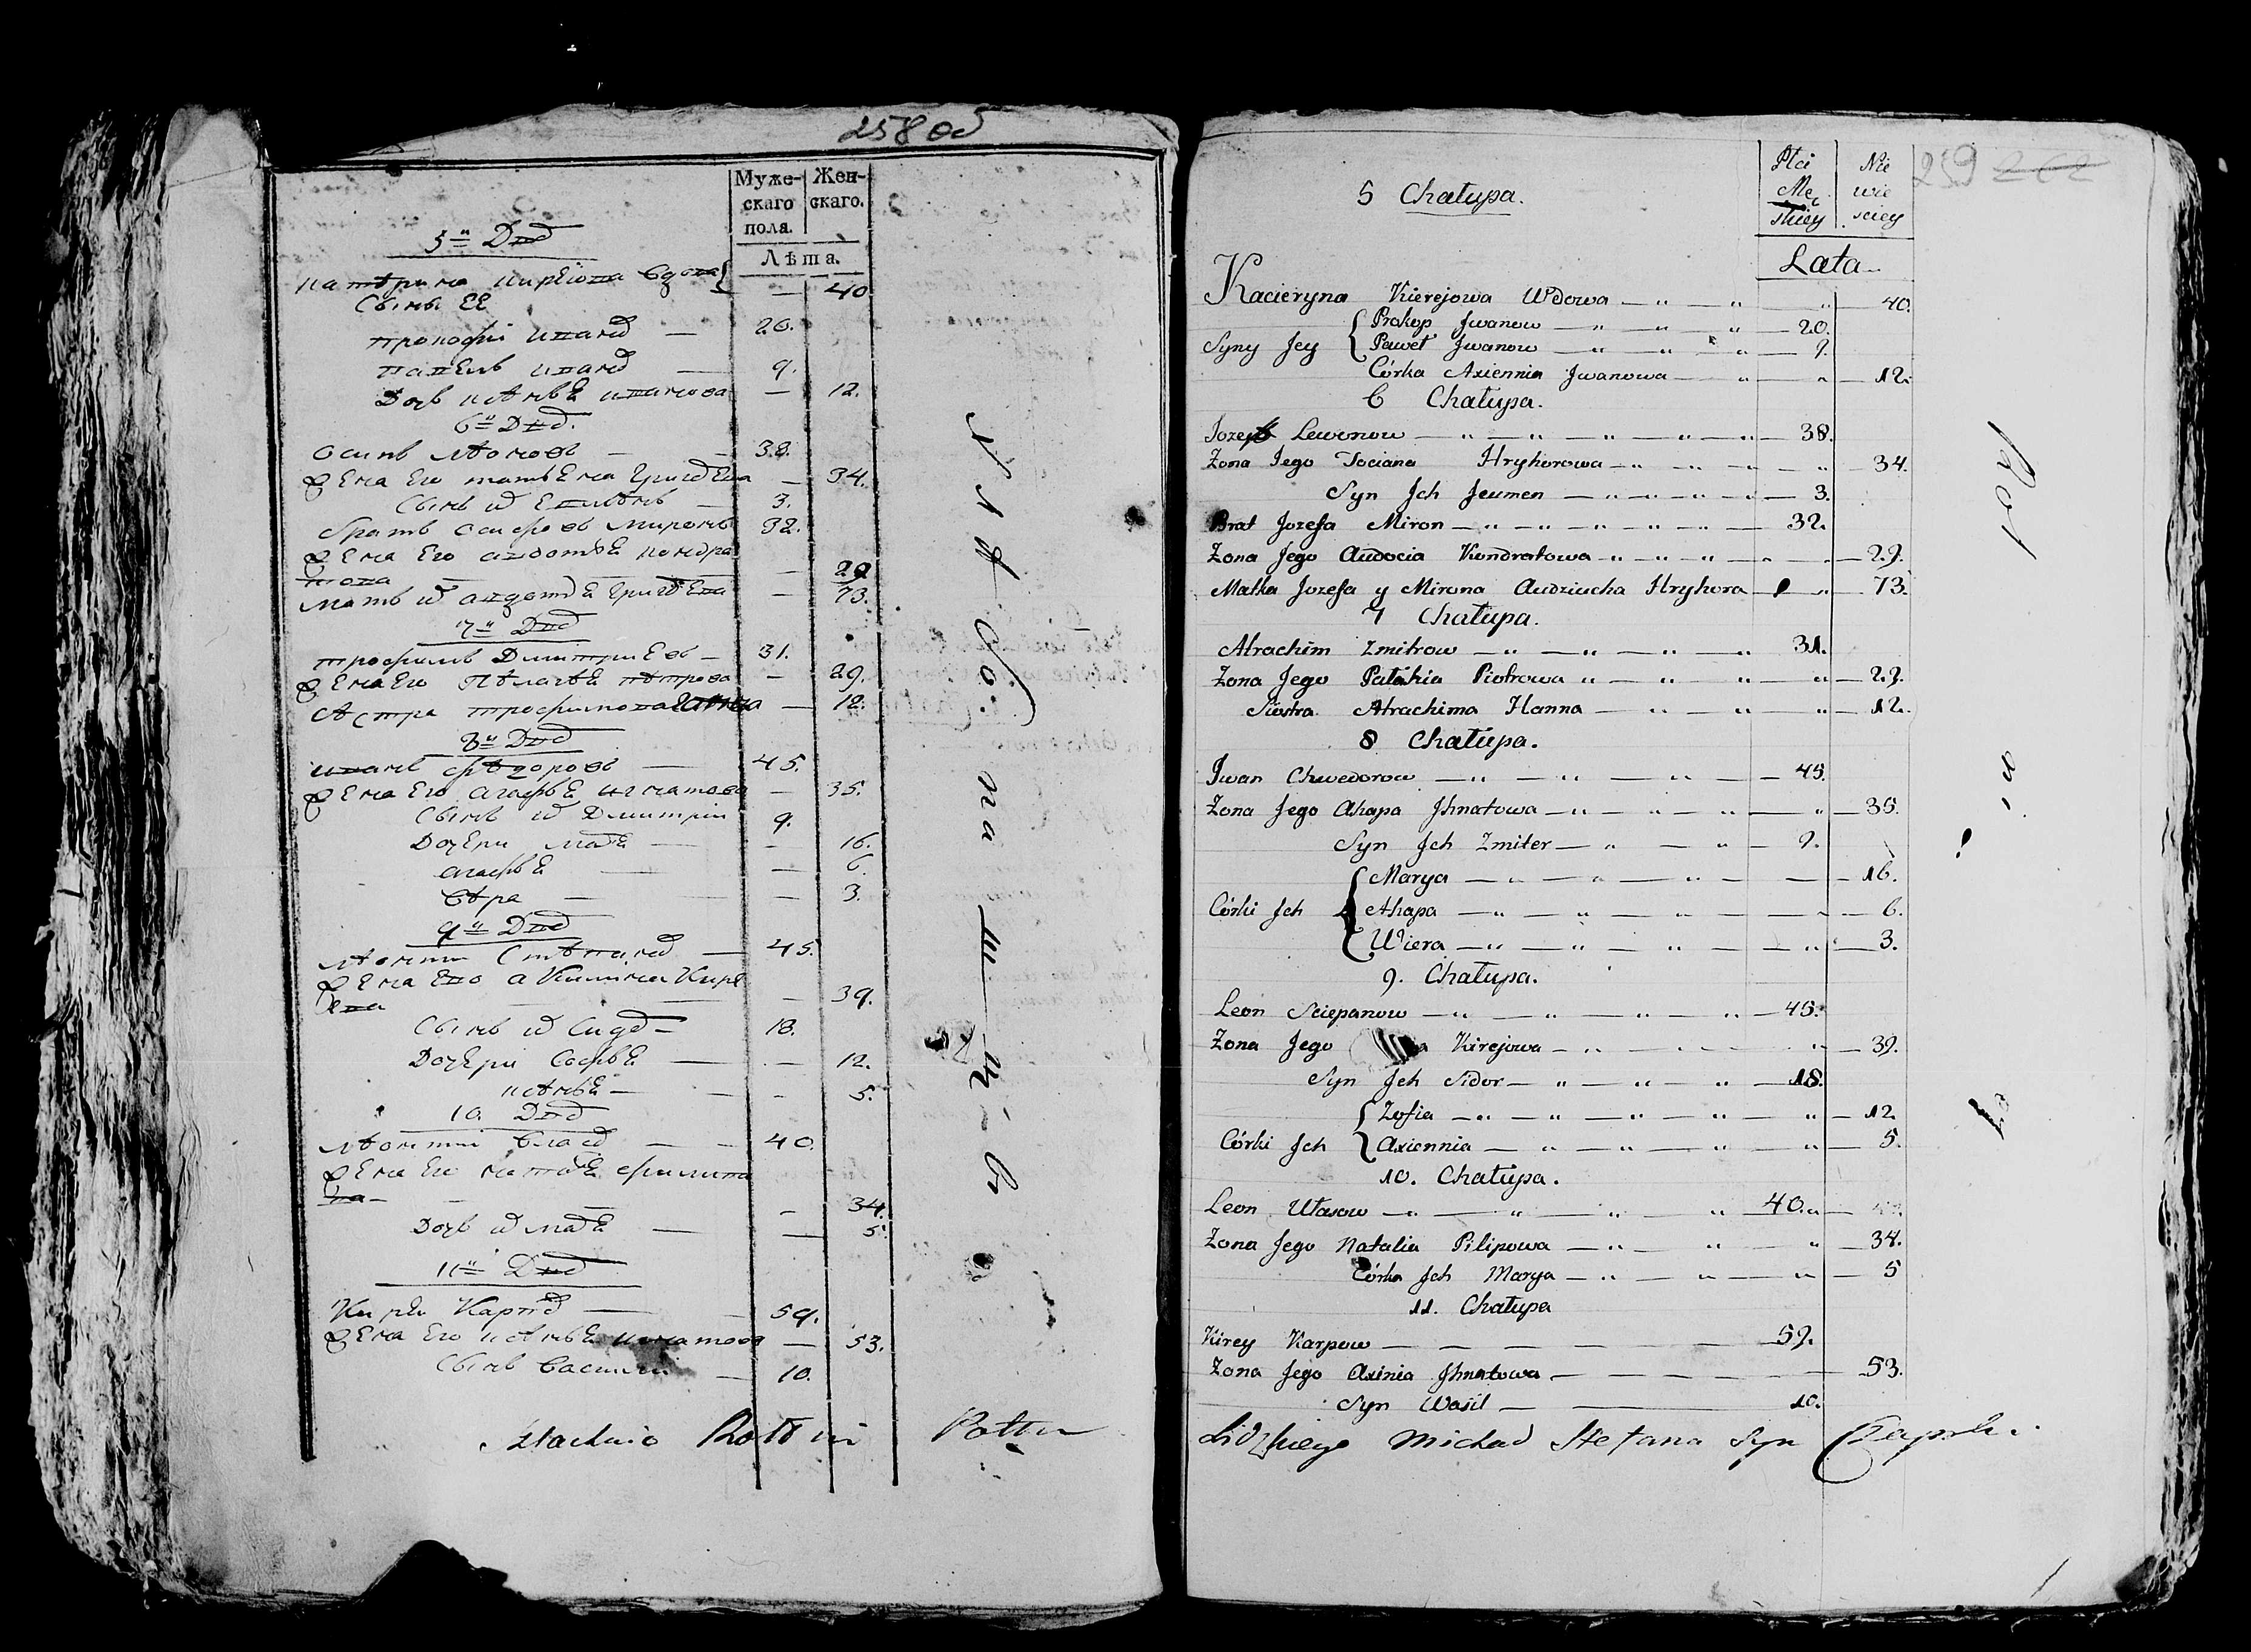 258 об
Муже-
скаго
пола.
Жен-
скаго.
Лѣта.
5й Двор
Катерина Кирѣева вдова — 40
Сыны ее
Прокофій Иванов — 20.
Павелъ Иванов — 9.
Дочь Ксенья Иванова — 12.
6й Двор.
Осипъ Леоновъ — 38.
Жена его Татьяна Григорьева — 34.
Сынъ их — 3.
Братъ Осиповъ Миронъ 32.
Жена его Авдотья Кондра
това — 29
Мать их Григорьева — 73.
7й Двор
Трофимъ Дмитриевъ — 31.
Жена его Пелагея Петрова — 29.
Сестра Трофимова Анна — 12.
8й Двор
Иванъ Федоровъ — 45.
Жена его Агафья Игнатова — 35.
Сынъ их Дмитрій 9.
Дочери Марья — 16.
Агафья — 6.
Вера — 3.
9й Двор
Леонтий Степанов — 45.
Жена его Кирѣ
ева — 39.
Сынъ их Сидор — 18.
Дочери Софья — 12.
Ксенья — 5.
10. Двор
Леонтій Власов — 40.
Жена его Наталья Филипо
ва — 34.
Дочь их Марья — 5.
11й Двор
Кирѣй Карпов — 59.
Жена его Ксенья Игнатова — 53.
Сынъ Василий — 10.
259
5 Chałupa.
Płci
Mę
skiey
Nie
wie
sciey
Lata
Kacieryna Kierejowa Wdowa — „ — „ „ — 40.
Syny Jey { Prokop Jwanow — „ — „ „ — 20.
Paweł Jwanow — „ — „ „ — 9.
Córka Axiennia Jwanowa — „ — „ — 12.
6 Chałupa.
Jozef Lewonow — „ — „ — „ — „ — „ — 38.
Żona Jego Tociana Hryhorowa — „ — „ — „ — „ — 34.
Syn Jch Jeumen — „ — „ — „ — „ — 3.
Brat Jozefa Miron — „ — „ — „ — „ — „ — 32.
Żona Jego Audocia Kondratowa — „ — „ — „ — „ — 29.
Matka Jozefa y Mirona Audziucha Hryhora — „ — 73.
7 Chałupa.
Atrachim Zmitrow — „ — „ — „ — „ 31.
Żona Jego Patahia Piotrowa „ — „ — „ — „ — 29.
Siostra Atrachima Hanna — „ — „ — „ — 12.
8 Chałupa.
Jwan Chwedorow — „ — „ — „ — 45.
Żona Jego Ahapa Jhnatowa — „ — „ — „ — „ — 35.
Syn Jch Zmiter — „ — „ — 9.
Córki Jch { Marya — „ — „ — „ — — 16.
Ahapa — „ — „ — „ — „ — 6.
Wiera — „ — „ — „ — „ — 3.
9. Chałupa.
Leon Sciepanow — „ — „ — „ — „ — 45.
Żona Jego Kirejowa — „ — „ — „ — 39.
Syn Jch Sidor — „ — „ — „ — 18.
Córki Jch { Zofia — „ — „ — „ — „ — „ — 12.
Axiennia — „ — „ — „ — „ — 5.
10. Chałupa.
Leon Własow — „ — „ — „ — „ 40.
Żona Jego Natalia Pilipowa — „ — „ — „ — 34.
Córka Jch Marya — „ — „ — „ — 5
11. Chałupa
Kirey Karpow — — — — 59.
Żona Jego Axinia Jhnatowa — — — — 53.
Syn Wasil — — 10.
Lidzkiego Michał Stefana Syn